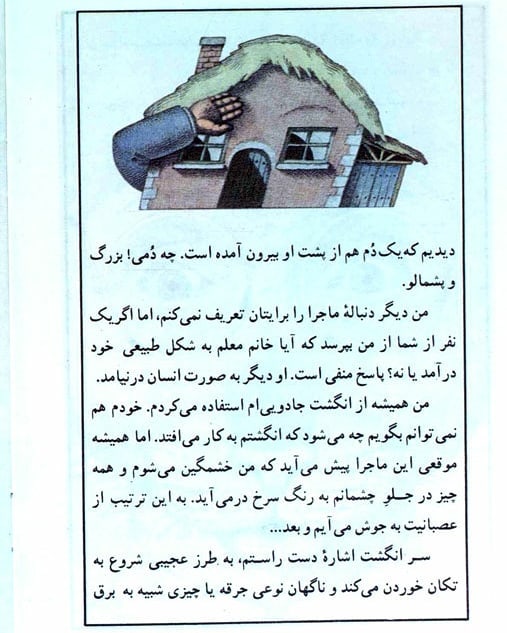 دیدیم که یک دُم هم از پشت او بیرون آمده است. چه دُمی! بزرگ
و پشمالو.
من دیگر دنبالهٔ ماجرا را برایتان تعریف نمی‌کنم، اما اگر یک
نفر از شما از من بپرسد که آیا خانم معلم به شکل طبیعی خود
درآمد یا نه؟ پاسخ منفی است. او دیگر به صورت انسان درنیامد.
من همیشه از انگشت جادویی‌ام استفاده می‌کردم. خودم هم
نمی‌توانم بگویم چه می‌شود که انگشتم به کار می‌افتد. اما همیشه
موقعی این ماجرا پیش می‌آید که من خشمگین می‌شوم و همه
چیز در جلوِ چشمانم به رنگ سرخ درمی‌آید. به این ترتیب از
عصبانیت به جوش می‌آیم و بعد...
سر انگشت اشارهٔ دست راستم، به طرز عجیبی شروع به
تکان خوردن می‌کند و ناگهان نوعی جرقه یا چیزی شبیه به برق